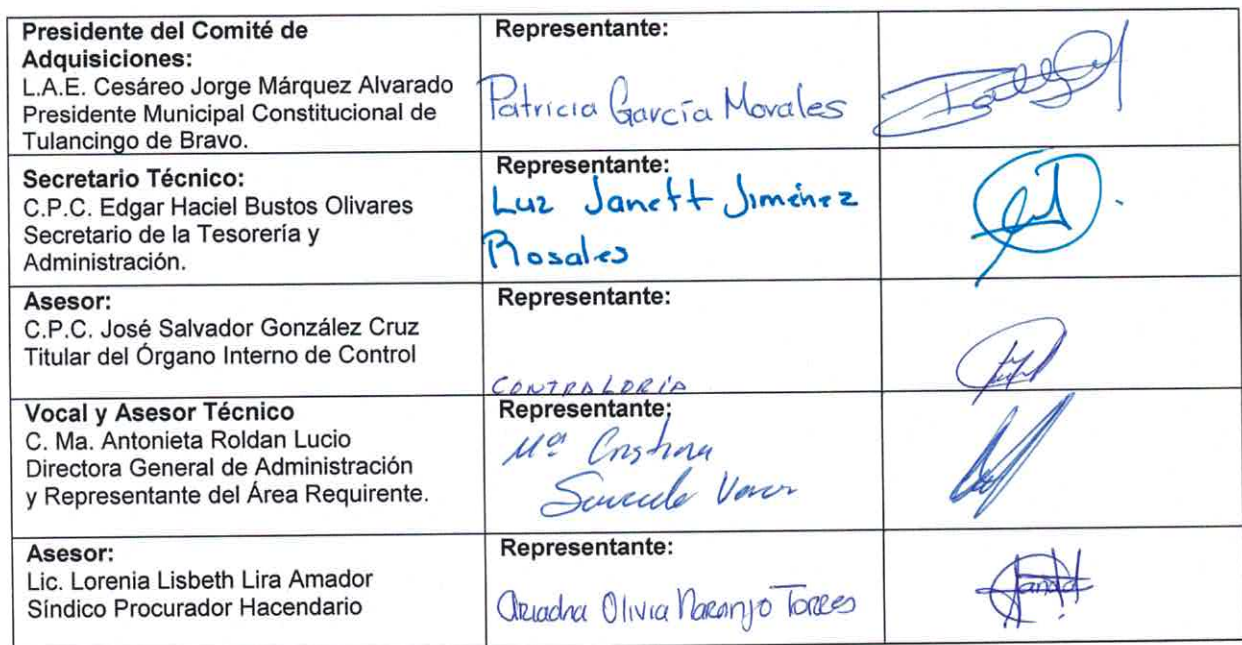 Presidente del Comité de
Adquisiciones:
L.A.E. Cesáreo Jorge Márquez Alvarado
Presidente Municipal Constitucional de
Tulancingo de Bravo.
Representante:
Patricia García Morales
Secretario Técnico:
C.P.C. Edgar Haciel Bustos Olivares
Secretario de la Tesorería y
Administración.
Representante:
Luz Janett Jiménez
Rosales
Asesor:
C.P.C. José Salvador González Cruz
Titular del Órgano Interno de Control
Representante:
CONTRALORÍA
Vocal y Asesor Técnico
C. Ma. Antonieta Roldan Lucio
Directora General de Administración
y Representante del Área Requirente.
Representante:
Mª Cristina
Asesor:
Lic. Lorenia Lisbeth Lira Amador
Síndico Procurador Hacendario
Representante:
Ariadna Olivia Naranjo Torres